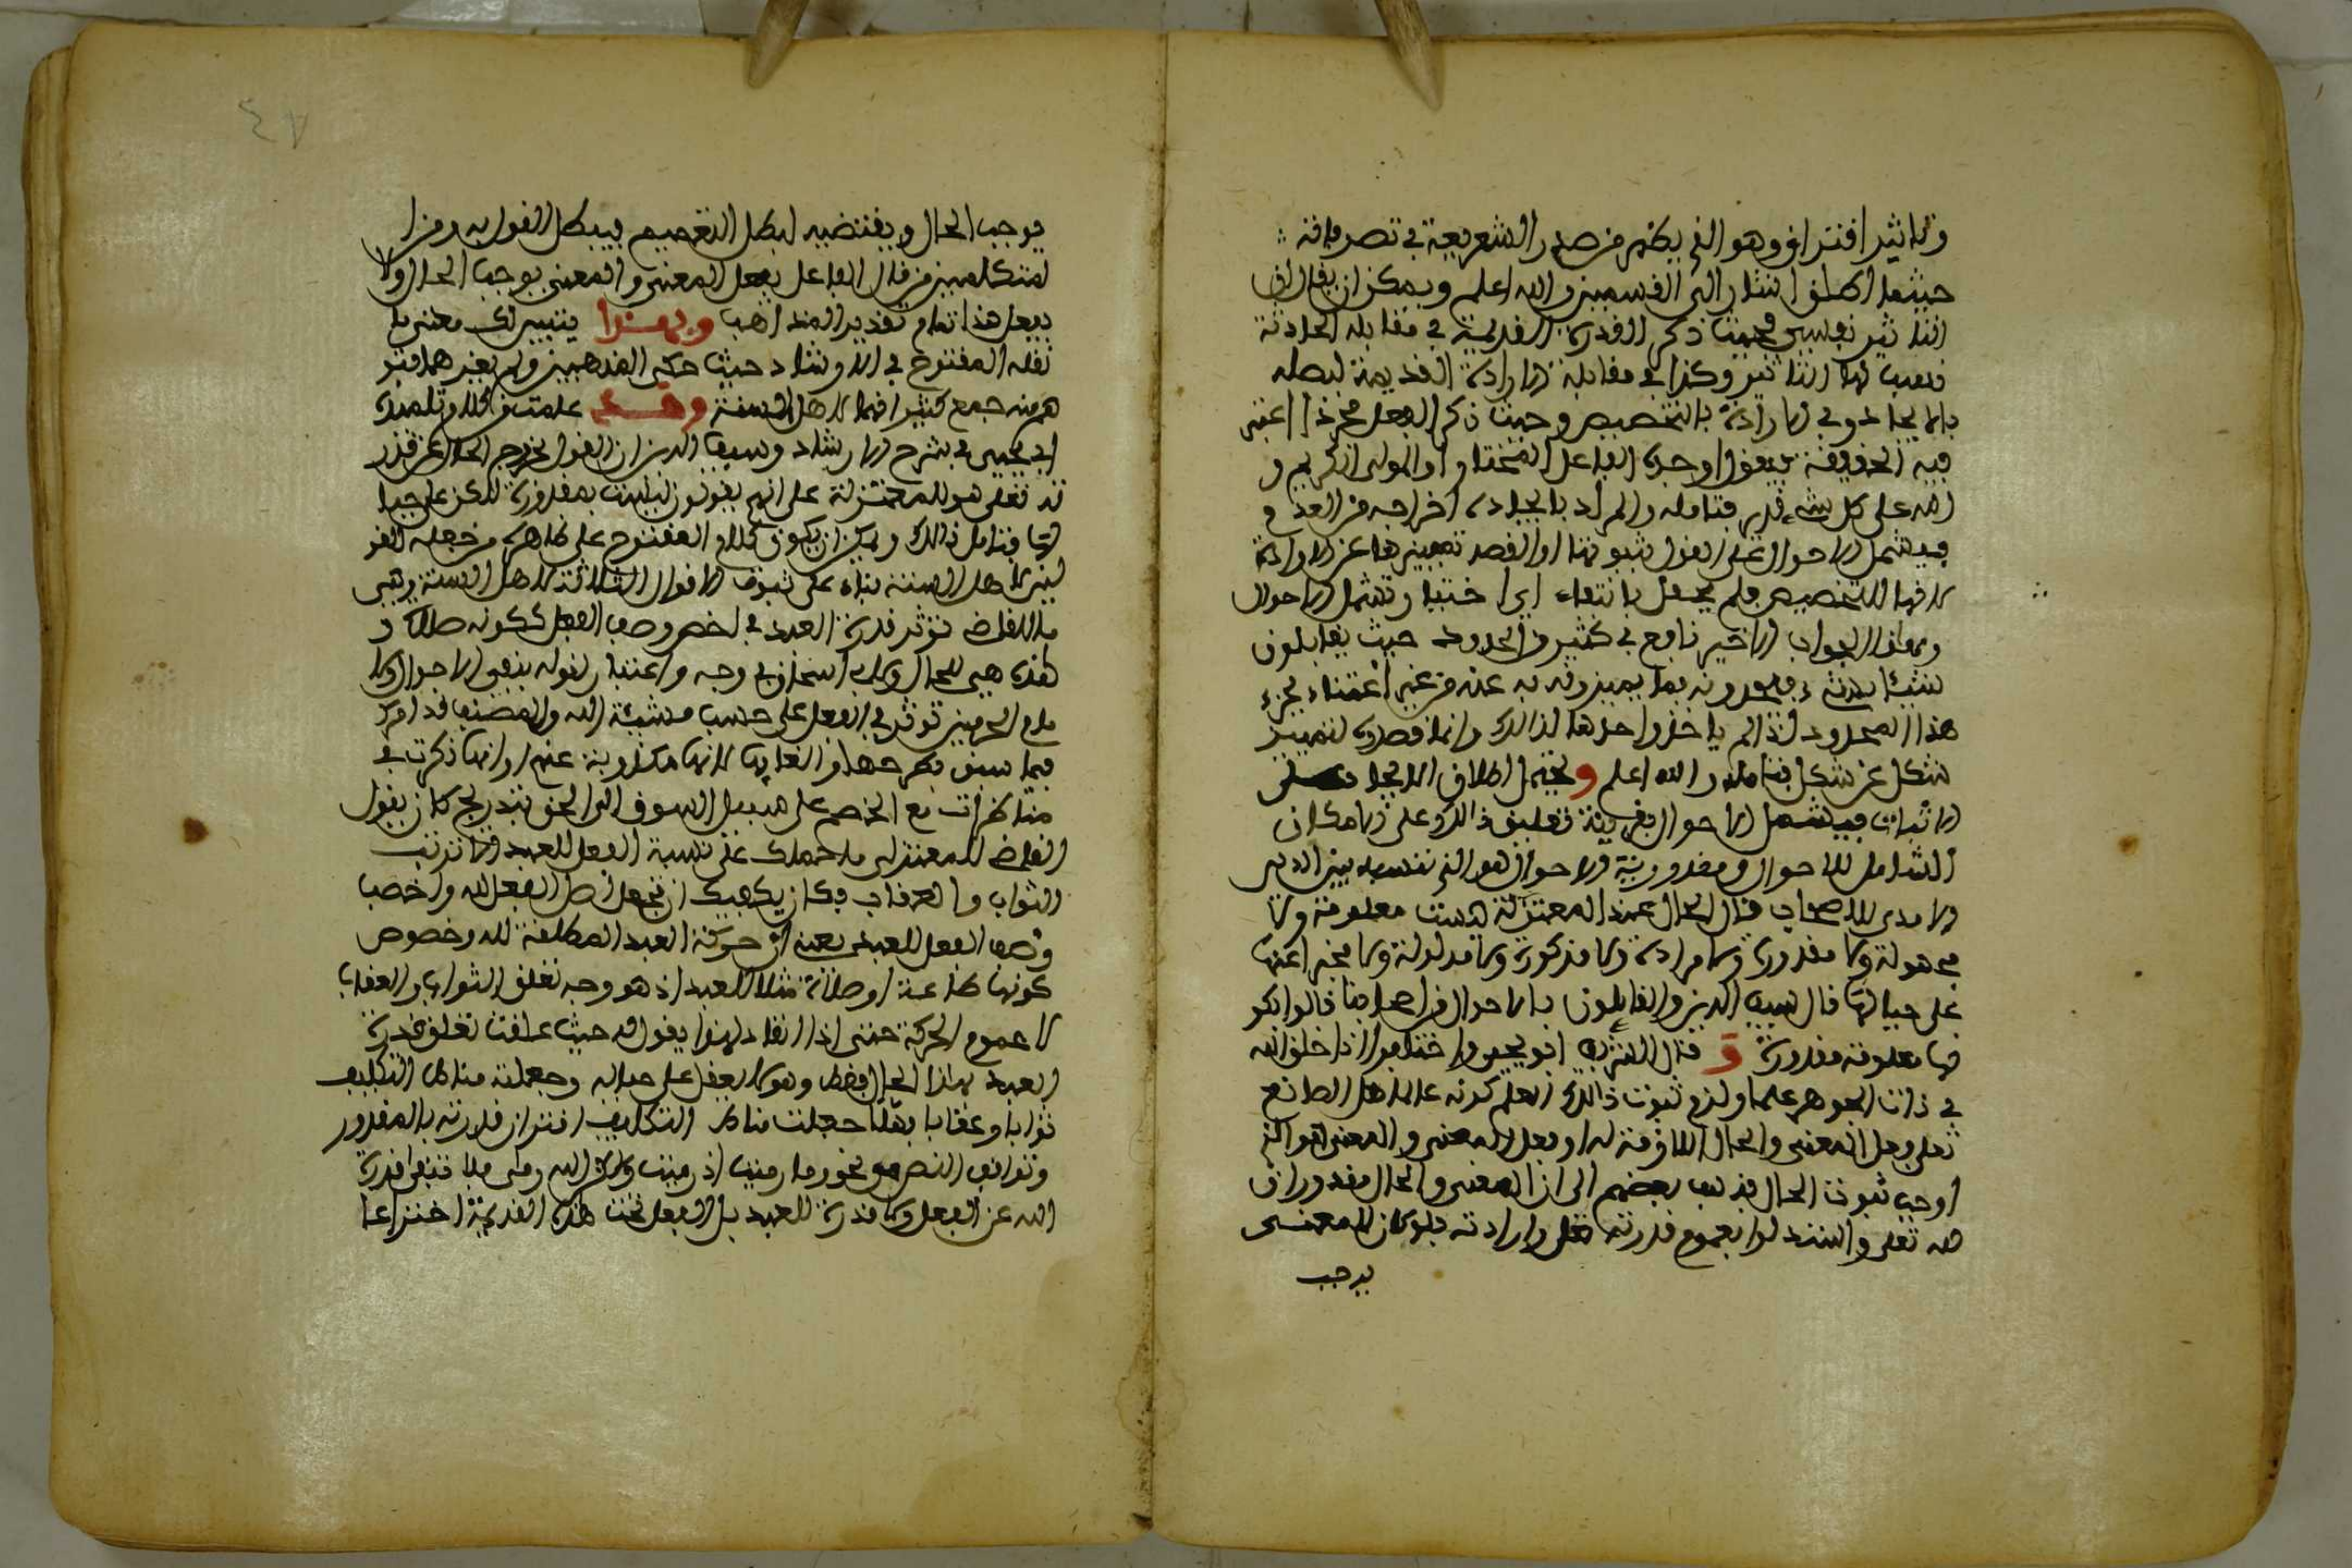 وتاثير افتراق وهو الذي يظهر من صدر الشريعة في تصرفاته
حيثما اطلق انشار الى القسمين والله اعلم ويمكن ان يقال ان
التاثير نوعين فحيث ذكر القدرة القديمة في مقابلة الحادثة
فعبر لها بالتاثير وكذا في مقابلة الارادة القديمة
بالايجاد وفي الارادة بالتخصيص وحيث ذكر الفعل مجردا اعتبر
فيه الحقيقة فيقول اوجده الفاعل المختار او المولى الكريم و
الله على كل شيء قدير فتامله والمراد بالايجاد اخراجه من العدم
فيشمل الاحوال على القول بثبوتها او القصد تمييزها عن الارادة
لانها للتخصيص فلم يحفل بانتفاء وتشمل الاحوال
وهذا الجواب الاخير نافع في كثير من الحدود حيث يقابلون
شيئا بشيء فيحدونه بما يميزونه به عنه من غير اعتناء بجزء
هذا المحدود اذا لم ياخذوا حدها لذلك وانما قصدوا لتمييز
شكل عن شكل فتامله والله اعلم ويحتمل اطلاق الايجاد على
الاثبات فيشمل الاحوال بقرينة تعليق ذلك على الامكان
الشامل للاحوال ومقدورية الاحوال هو الذي نسبه سيف الدين
الامدي للاصحاب قال الحال عند المعتزلة ليست معلومة ولا
مجهولة ولا مقدورة ولا مرادة ولا مذكورة ولا مدلولة ولا مخبر اعنها
على حيالها قال سيف الدين والقايلون بالاحوال من اصحابنا قالوا بكو
نها معلومة مقدورة و قال الشريف ابو يحيى واختلفوا اذا خلق الله
في ذات الجوهر علما ولزم ثبوت ذلك العلم كونه عالما هل الصانع
تعلى فعل المعنى والحال اللازمة له او فعل المعنى والمعنى هو الذي
اوجب ثبوت الحال فذهب بعضهم الى ان المعنى والحال مقدوران
لله تعلى واستدلوا بعموم قدرته تعلى وارادته فلو كان المعنى
يوجب
يوجب الحال ويقتضيه لبطل التعميم فيبطل القول به ومن ا
لمتكلمين من قال الفاعل يفعل المعنى والمعنى يوجب الحال ولا
يفعل هذا تمام تقدير المذاهب وبهذا يتبين لك معنى ما
نقله المقترح في الارشاد حيث حكى المذهبين ولم يعزهما فتو
هم منه جمع كثير انهما لاهل السنة وقد علمت من كلام تلميذه
ابي يحيى في شرح الارشاد وسيف الدين ان القول بخروج الحال عن قدر
ته تعلى هو للمعتزلة على انهم يقولون ليست بمقدورة لكن على حيا
لها فتامل ذلك ويمكن ان يكون كلام المقترح على ظاهره من جعله القو
لين لاهل السنة بناء على ثبوت الاقوال الثلاثة لاهل السنة وهي
ما للقاضي تؤثر قدرة العبد في اخص وصف الفعل ككونه صلاة و
هذه هي الحال وللاستاذ في وجه واعتبار لقوله بنفي الاحوال ولا
مام الحرمين تؤثر في الفعل على حسب مشيئة الله والمصنف قد امرك
فيما سبق بطرحها والغايها لانها مكذوبة عنهم او انها ذكرت في
مناظرات مع الخصم على سبيل السوق الى الحق بتدريج كان يقول
القاضي للمعتزلي ما حملك على نسبة الفعل للعبد الا ترتب
الثواب والعقاب فكان يكفيك ان تجعل اصل الفعل لله واخص
وصف الفعل للعبد بمعنى ان حركة العبد المطلقة لله وخصوص
كونها طاعة او صلاة مثلا للعبد اذ هو وجه تعلق الثواب والعقاب
لا عموم الحركة حتى اذا انقاد لهذا يقول له حيث علقت تعلق قدرة
العبد بهذا الحال فقط وهو لا يعقل على حياله وجعلته مناط التكليف
ثوابا وعقابا فهلا جعلت مناط التكليف اقتران قدرته بالمقدور
وتوافق النص في نحو وما رميت اذ رميت ولكن الله رمى فلا تنتفي قدرة
الله عن الفعل ولا قدرة للعبد بل الفعل تحت هذه القديمة اختراعا